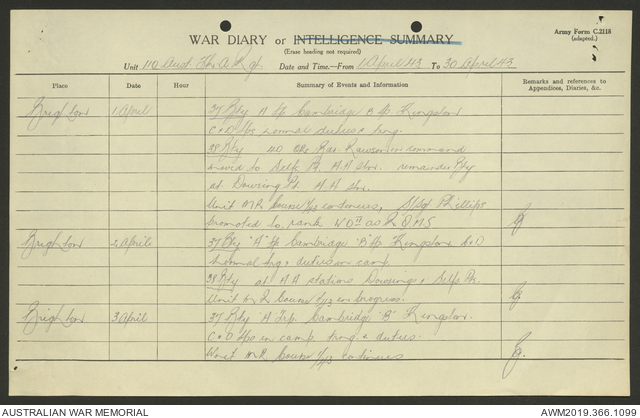 WAR DIARY or INTELLIGENCE SUMMARY
(Erase heading not required)
Army Form C.2118
(adapted.)
Unit 110 Aust. A. Rgt. Date and Time—From 1 April 43 To 30 April 43
Place Date Hour Summary of Events and Information Remarks and references to Appendices, Diaries, &c.
Brighton 1 April 37 Bty A Tp Cambridge B Tp Kingston
C & D Tps normal duties & trng.
38 Bty 40 ORs Rawson in command
moved to Selfs Pt A.A. Stn. remainder Bty
at Dowsing Pt. A.A. Stn.
Unit M.R. Course continues, S/Sgt Phillips
promoted to rank R.Q.M.S.
Brighton 2 April 37 Bty "A" Tp Cambridge "B" Tp Kingston C & D
normal trg & duties in camp.
38 Bty at AA stations Dowsing & Selfs Pt.
Unit M.R. Course in progress.
Brighton 3 April 37 Bty "A" Trp. Cambridge "B" Kingston.
C & D Tps in camp trng. & duties.
Unit M.R. Course continues
AUSTRALIAN WAR MEMORIAL
AWM2019.366.1099